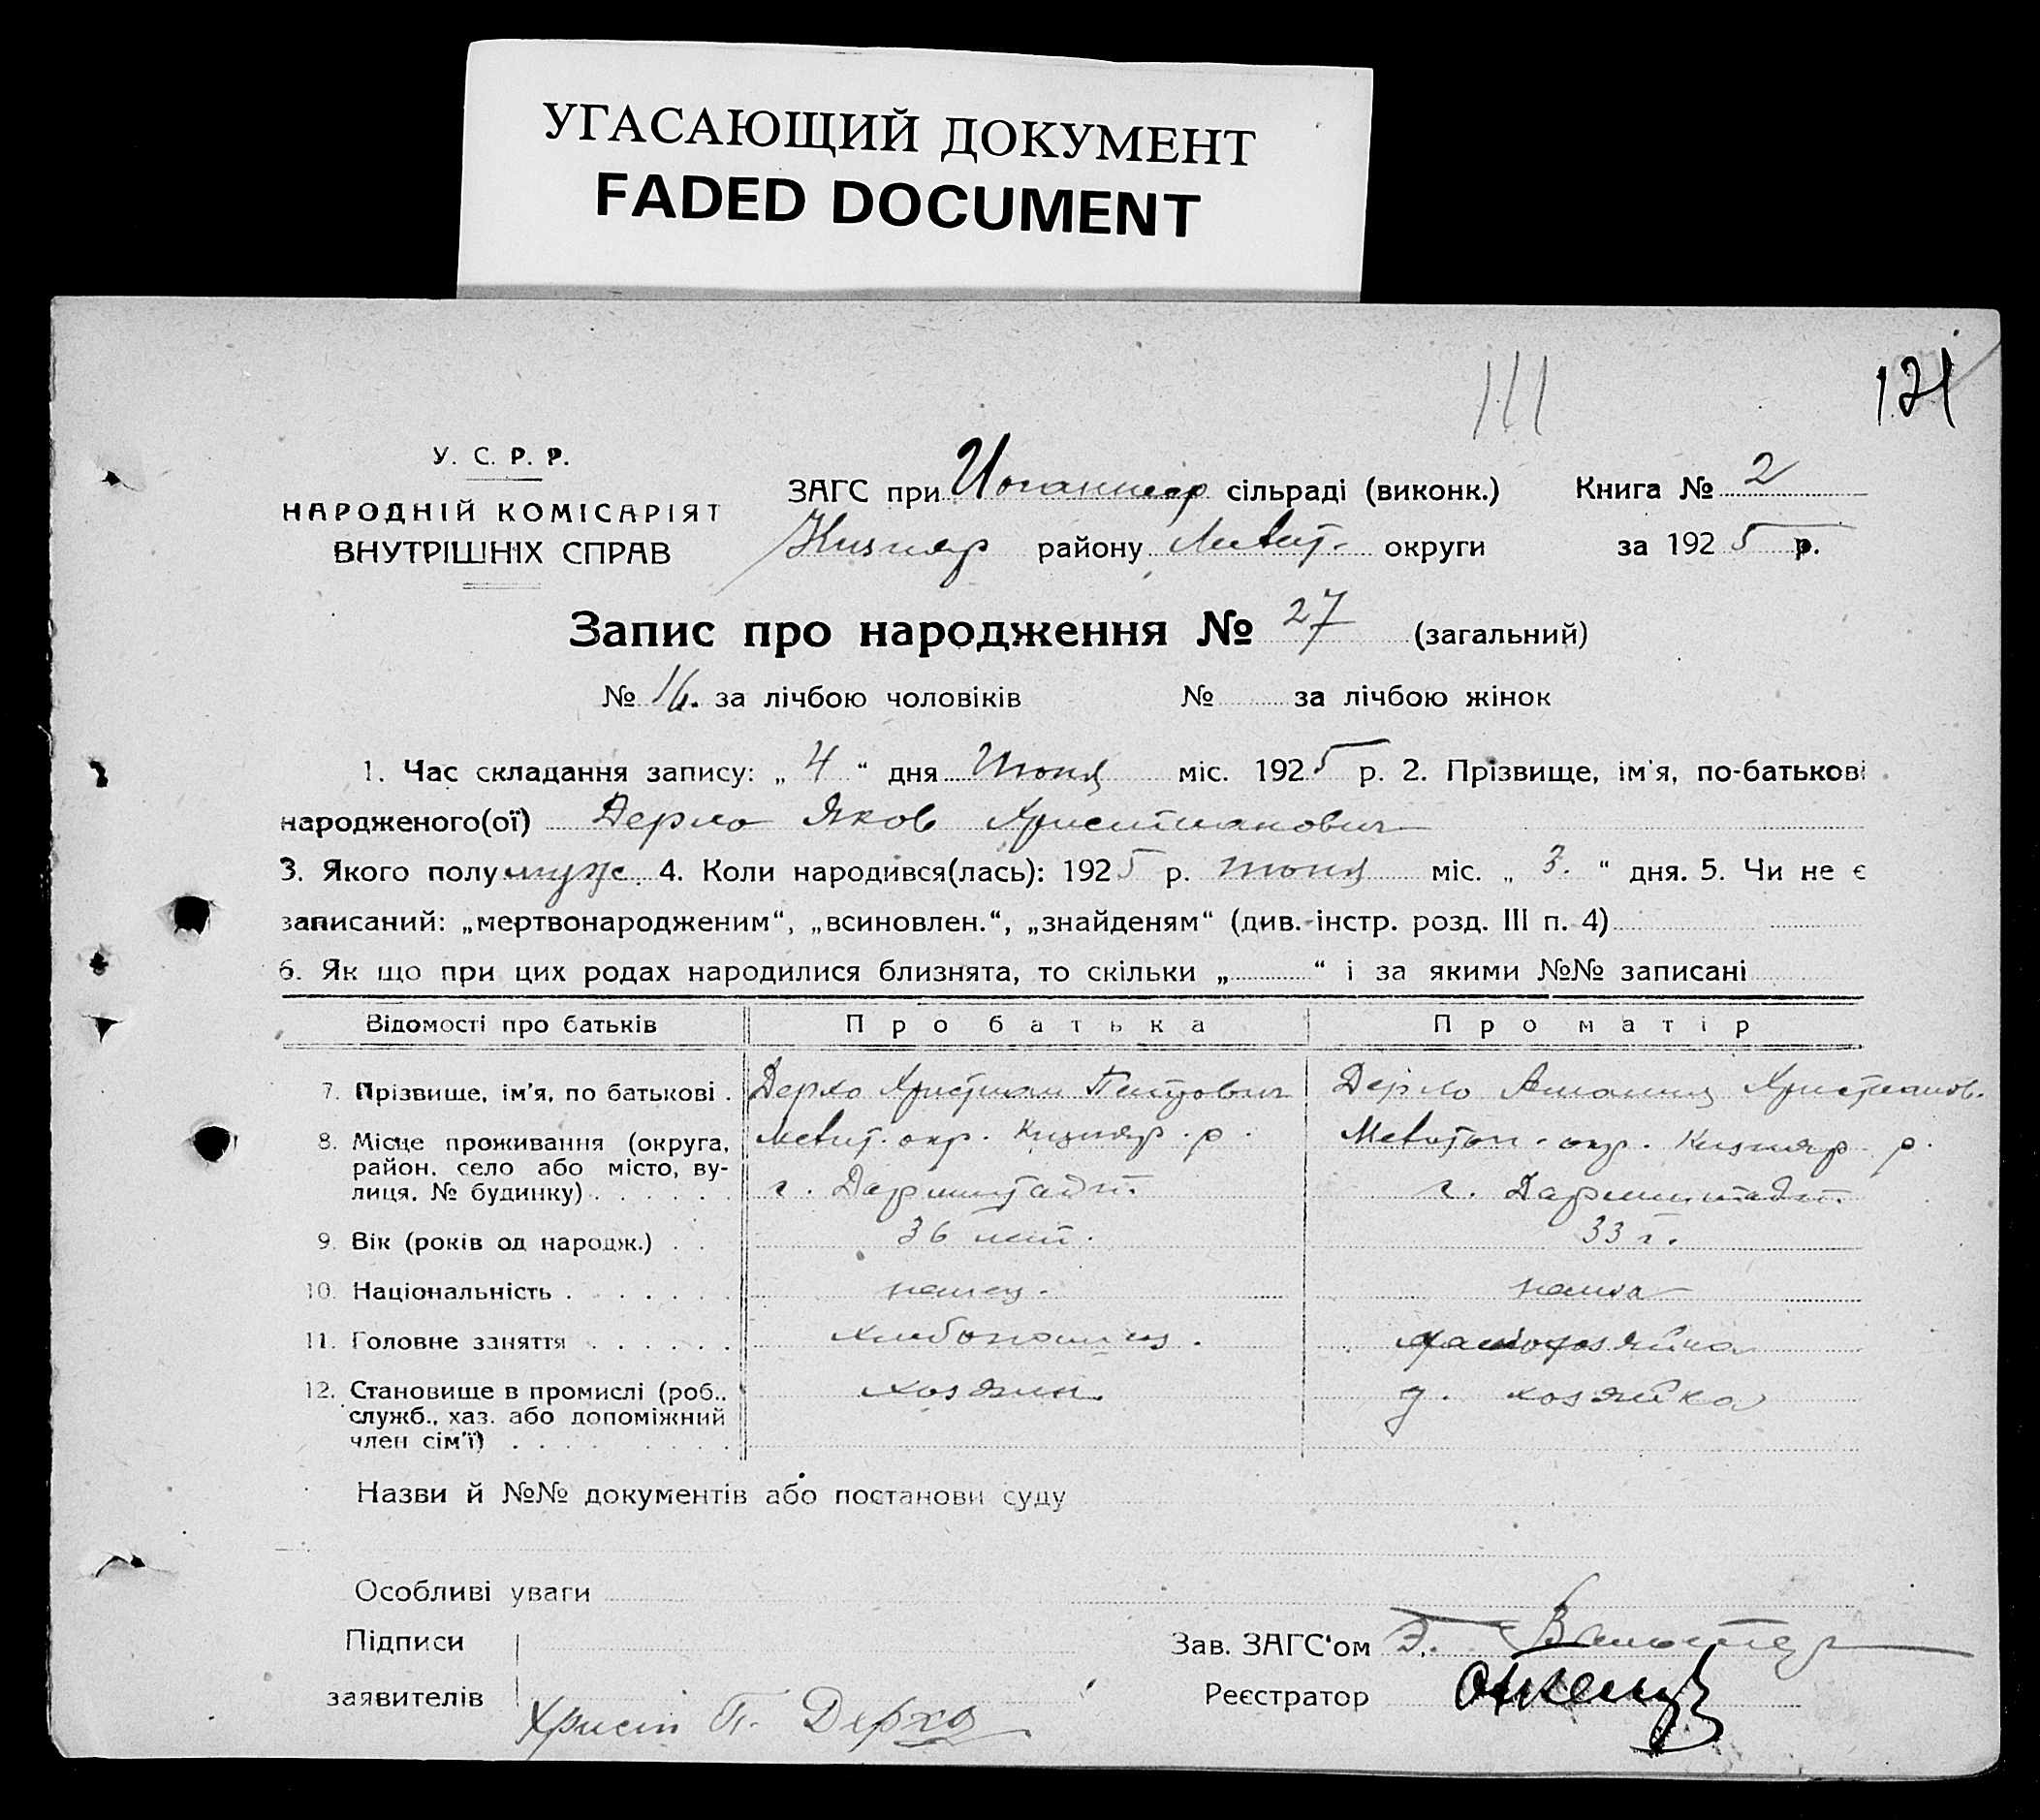 УГАСАЮЩИЙ ДОКУМЕНТ
FADED DOCUMENT
111
121
У. С. Р. Р.
НАРОДНІЙ КОМІСАРІЯТ
ВНУТРІШНІХ СПРАВ
ЗАГС при сільраді (виконк.) Книга № 2
району округи за 1925 р.
Запис про народження № 27 (загальний)
№ 16. за лічбою чоловіків № за лічбою жінок
1. Час складання запису: „ 4 “ дня Июня міс. 1925 р. 2. Прізвище, ім'я, по-батькові
народженого(ої) Дерхо Яков Християнович
3. Якого полу муж. 4. Коли народився(лась): 1925 р. июня міс. „ 3. “ дня. 5. Чи не є
записаний: „мертвонародженим“, „всиновлен.“, „знайденям“ (див. інстр. розд. III п. 4)
6. Як що при цих родах народилися близнята, то скільки „ “ і за якими №№ записані
Відомості про батьків Про батька Про матір
7. Прізвище, ім'я, по батькові . Дерхо Християн Дерхо Християнов.
8. Місце проживання (округа, Мелит. окр. Кизияр. р. Мелитоп. окр. Кизияр р.
район, село або місто, ву-
лиця, № будинку) . . . . . . с. Дармштадт. с. Дармштадт.
9. Вік (років од народж.) . . 36 лет. 33 г.
10. Національність . . . . . . . немец. немка
11. Головне заняття . . . . . . домохозяйка
12. Становище в промислі (роб., хозяин. д. хозяйка
служб., хаз. або допоміжний
член сім'ї) . . . . . . . .
Назви й №№ документів або постанови суду
Особливі уваги
Підписи Зав. ЗАГС'ом Э. Вальтер
заявителів Христ П. Дерхо Реєстратор